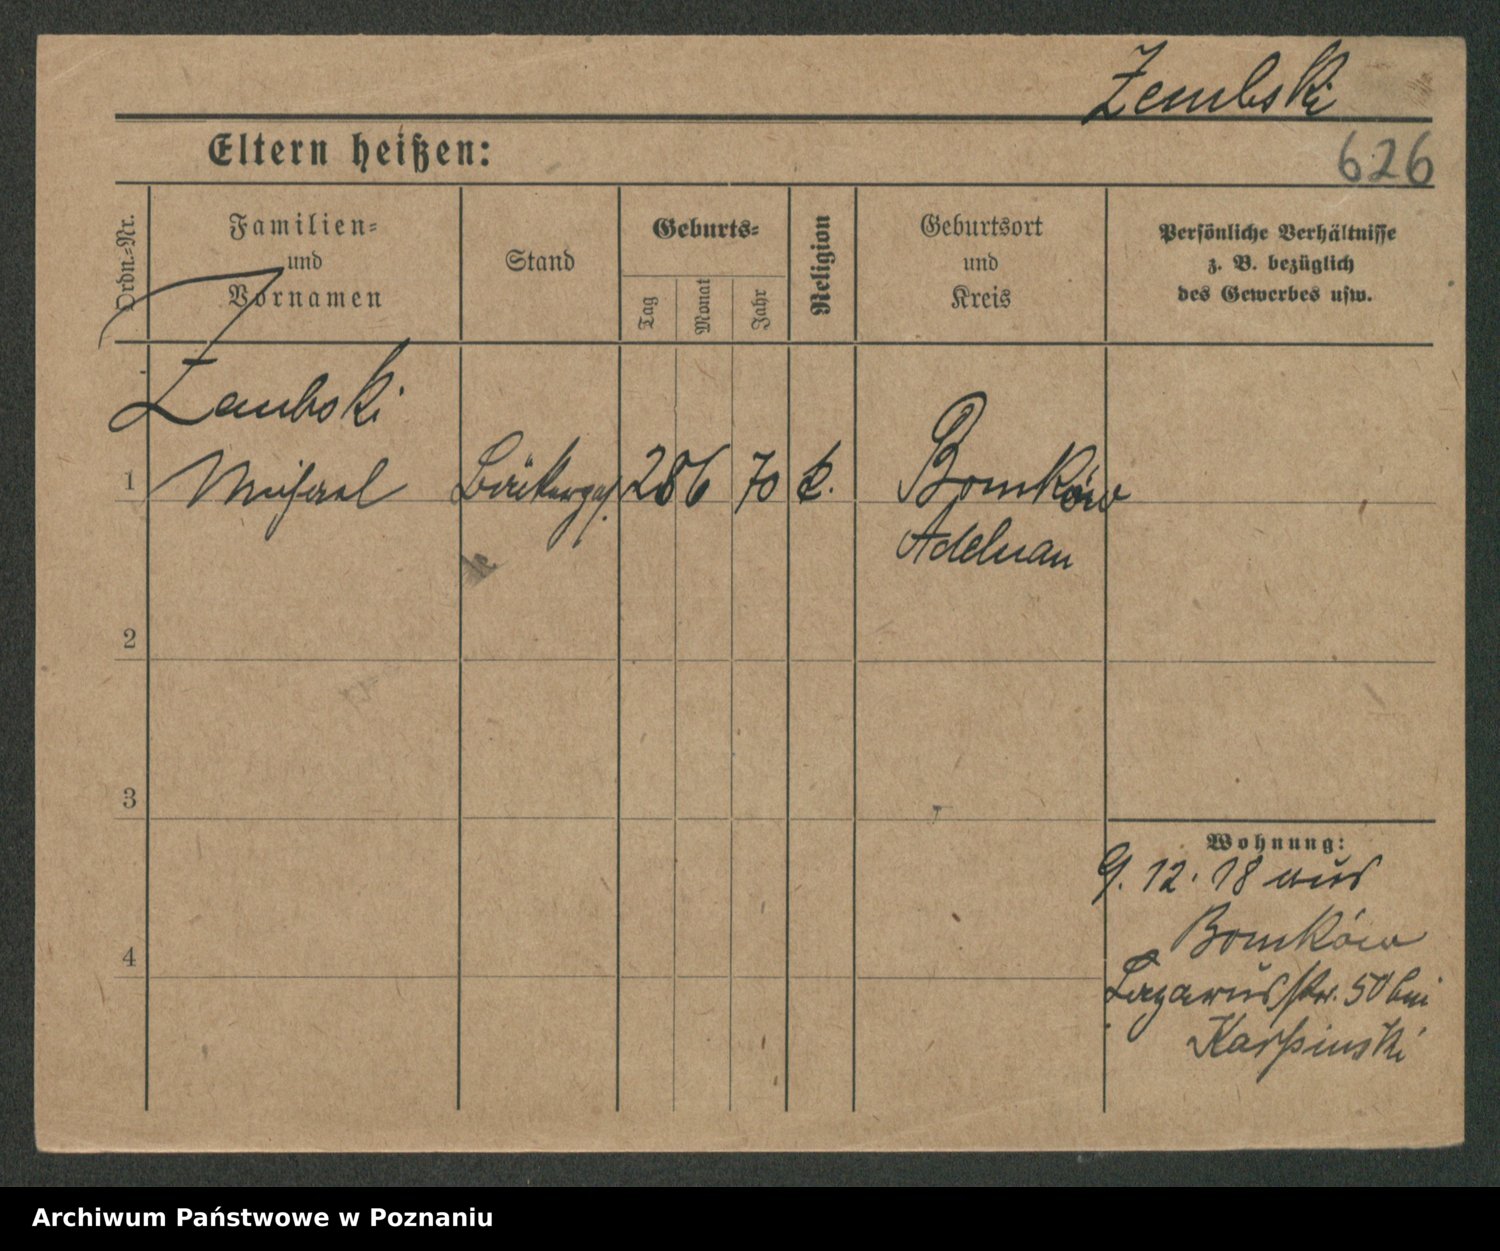 Zembski
626
Eltern heißen:
Ordn.-Nr.
Familien-
und
Vornamen
Stand
Geburts-
Tag
Monat
Jahr
Religion
Geburtsort
und
Kreis
Persönliche Verhältnisse
z. B. bezüglich
des Gewerbes usw.
Zembski
1
Michael
Bäckerges.
28 6
70
k.
Boników
Adelnau
2
3
4
Wohnung:
9. 12. 18 aus
Boników
Lazarusstr. 50 bei
Karpinski
Archiwum Państwowe w Poznaniu